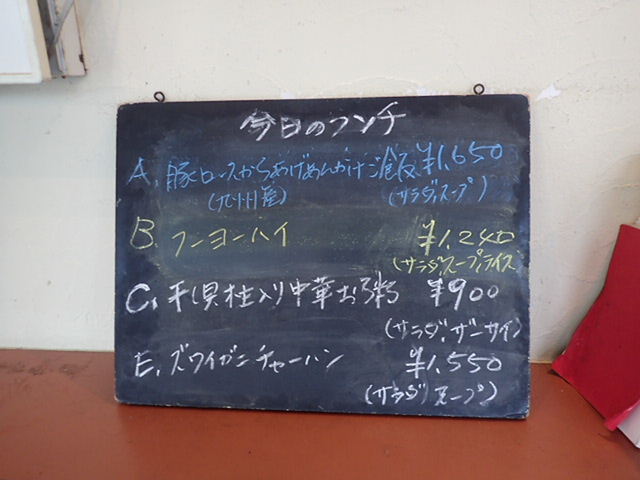 今日のランチ
A. 豚ロースからあげあんかけご飯 ¥1,650
(九州産) (サラダ,スープ)
B. フーヨーハイ ¥1,240
(サラダ,スープ,ライス)
C. 干し貝柱入り中華お粥 ¥900
(サラダ,ザーサイ)
E. ズワイガニチャーハン ¥1,550
(サラダ スープ)